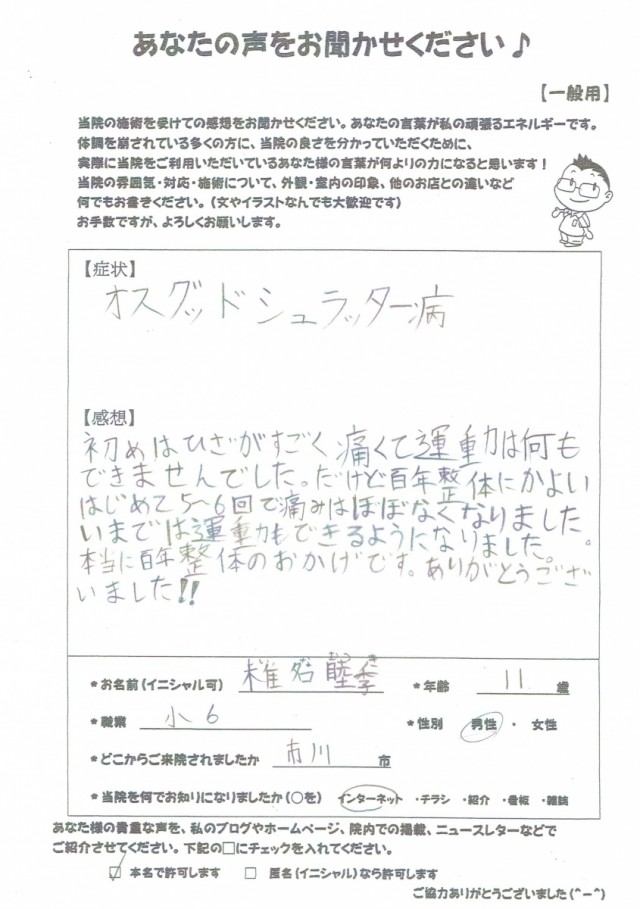 あなたの声をお聞かせください♪
【一般用】
当院の施術を受けての感想をお聞かせください。あなたの言葉が私の頑張るエネルギーです。
体調を崩されている多くの方に、当院の良さを分かっていただくために、
実際に当院をご利用いただいているあなた様の言葉が何よりの力になると思います！
当院の雰囲気・対応・施術について、外観・室内の印象、他のお店との違いなど
何でもお書きください。（文やイラストなんでも大歓迎です）
お手数ですが、よろしくお願いします。
【症状】
オスグッドシュラッター病
【感想】
初めはひざがすごく痛くて運動は何も
できませんでした。だけど百年整体にかよい
はじめて5〜6回で痛みはほぼなくなりました。
いまでは運動もできるようになりました。
本当に百年整体のおかげです。ありがとうござ
いました!!
むつ き
*お名前（イニシャル可） 椎名睦季 *年齢 11 歳
*職業 小6 *性別 男性 ・ 女性
*どこからご来院されましたか 市川 市
*当院を何でお知りになりましたか（○を） インターネット ・チラシ ・紹介 ・看板 ・雑誌
あなた様の貴重な声を、私のブログやホームページ、院内での掲載、ニュースレターなどで
ご紹介させてください。下記の□にチェックを入れてください。
☑ 本名で許可します □ 匿名（イニシャル）なら許可します
ご協力ありがとうございました(^－^)